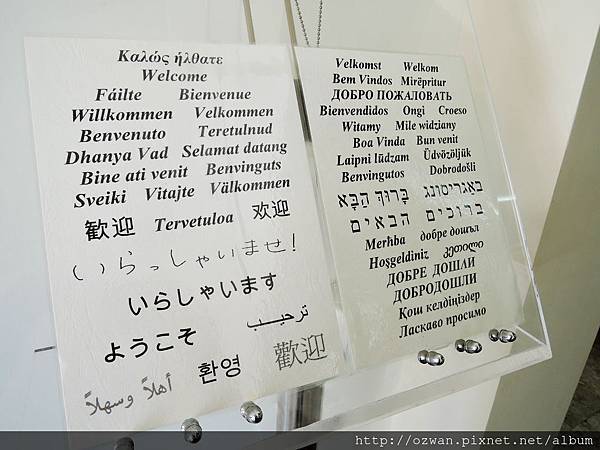 Καλώς ήλθατε
Welcome
Fáilte Bienvenue
Willkommen Velkommen
Benvenuto Teretulnud
Dhanya Vad Selamat datang
Bine ati venit Benvinguts
Sveiki Vitajte Välkommen
歡迎 Tervetuloa 欢迎
いらっしゃいませ!
いらしゃいます
ようこそ ترحيب
환영 歡迎
أهلاً وسهلاً
Velkomst Welkom
Bem Vindos Mirëpritur
ДОБРО ПОЖАЛОВАТЬ
Bienvendidos Ongi Croeso
Witamy Mile widziany
Boa Vinda Bun venit
Laipni lūdzam Üdvözöljük
Benvingutos Dobrodošli
בָּרוּךְ הַבָּא באגריסונג
ברוכים הבאים
Merhba добре дошъл
Hoşgeldiniz კეთილი
ДОБРЕ ДОШЛИ
ДОБРОДОШЛИ
Қош келдіңіздер
Ласкаво просимо
http://ozwan.pixnet.net/album